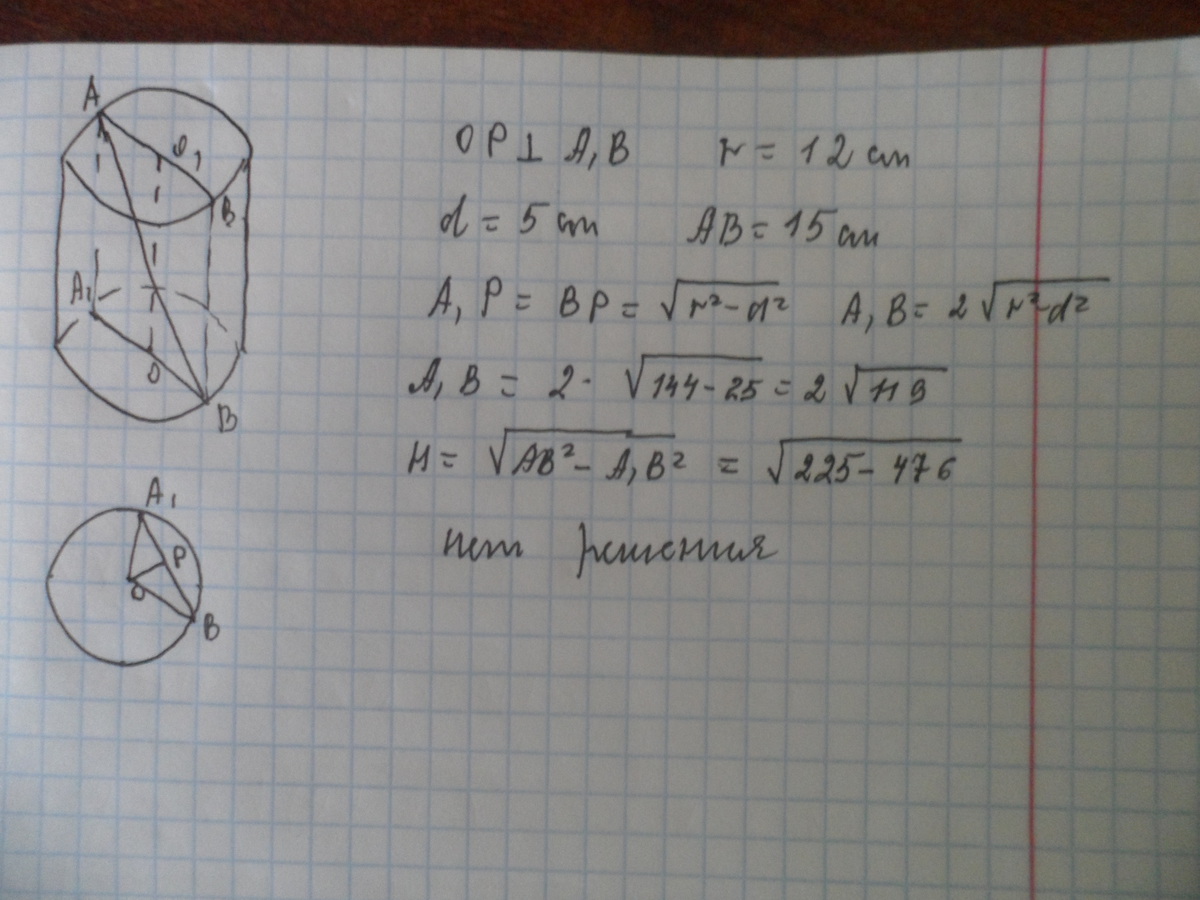 A
O₁
B
A₁
O
B
A₁
P
O
B
OP ⊥ A₁B r = 12 cm
d = 5 cm AB = 15 cm
A₁P = BP = √r² - d² A₁B = 2 √r² - d²
A₁B = 2 · √144 - 25 = 2 √119
H = √AB² - A₁B² = √225 - 476
нет решения